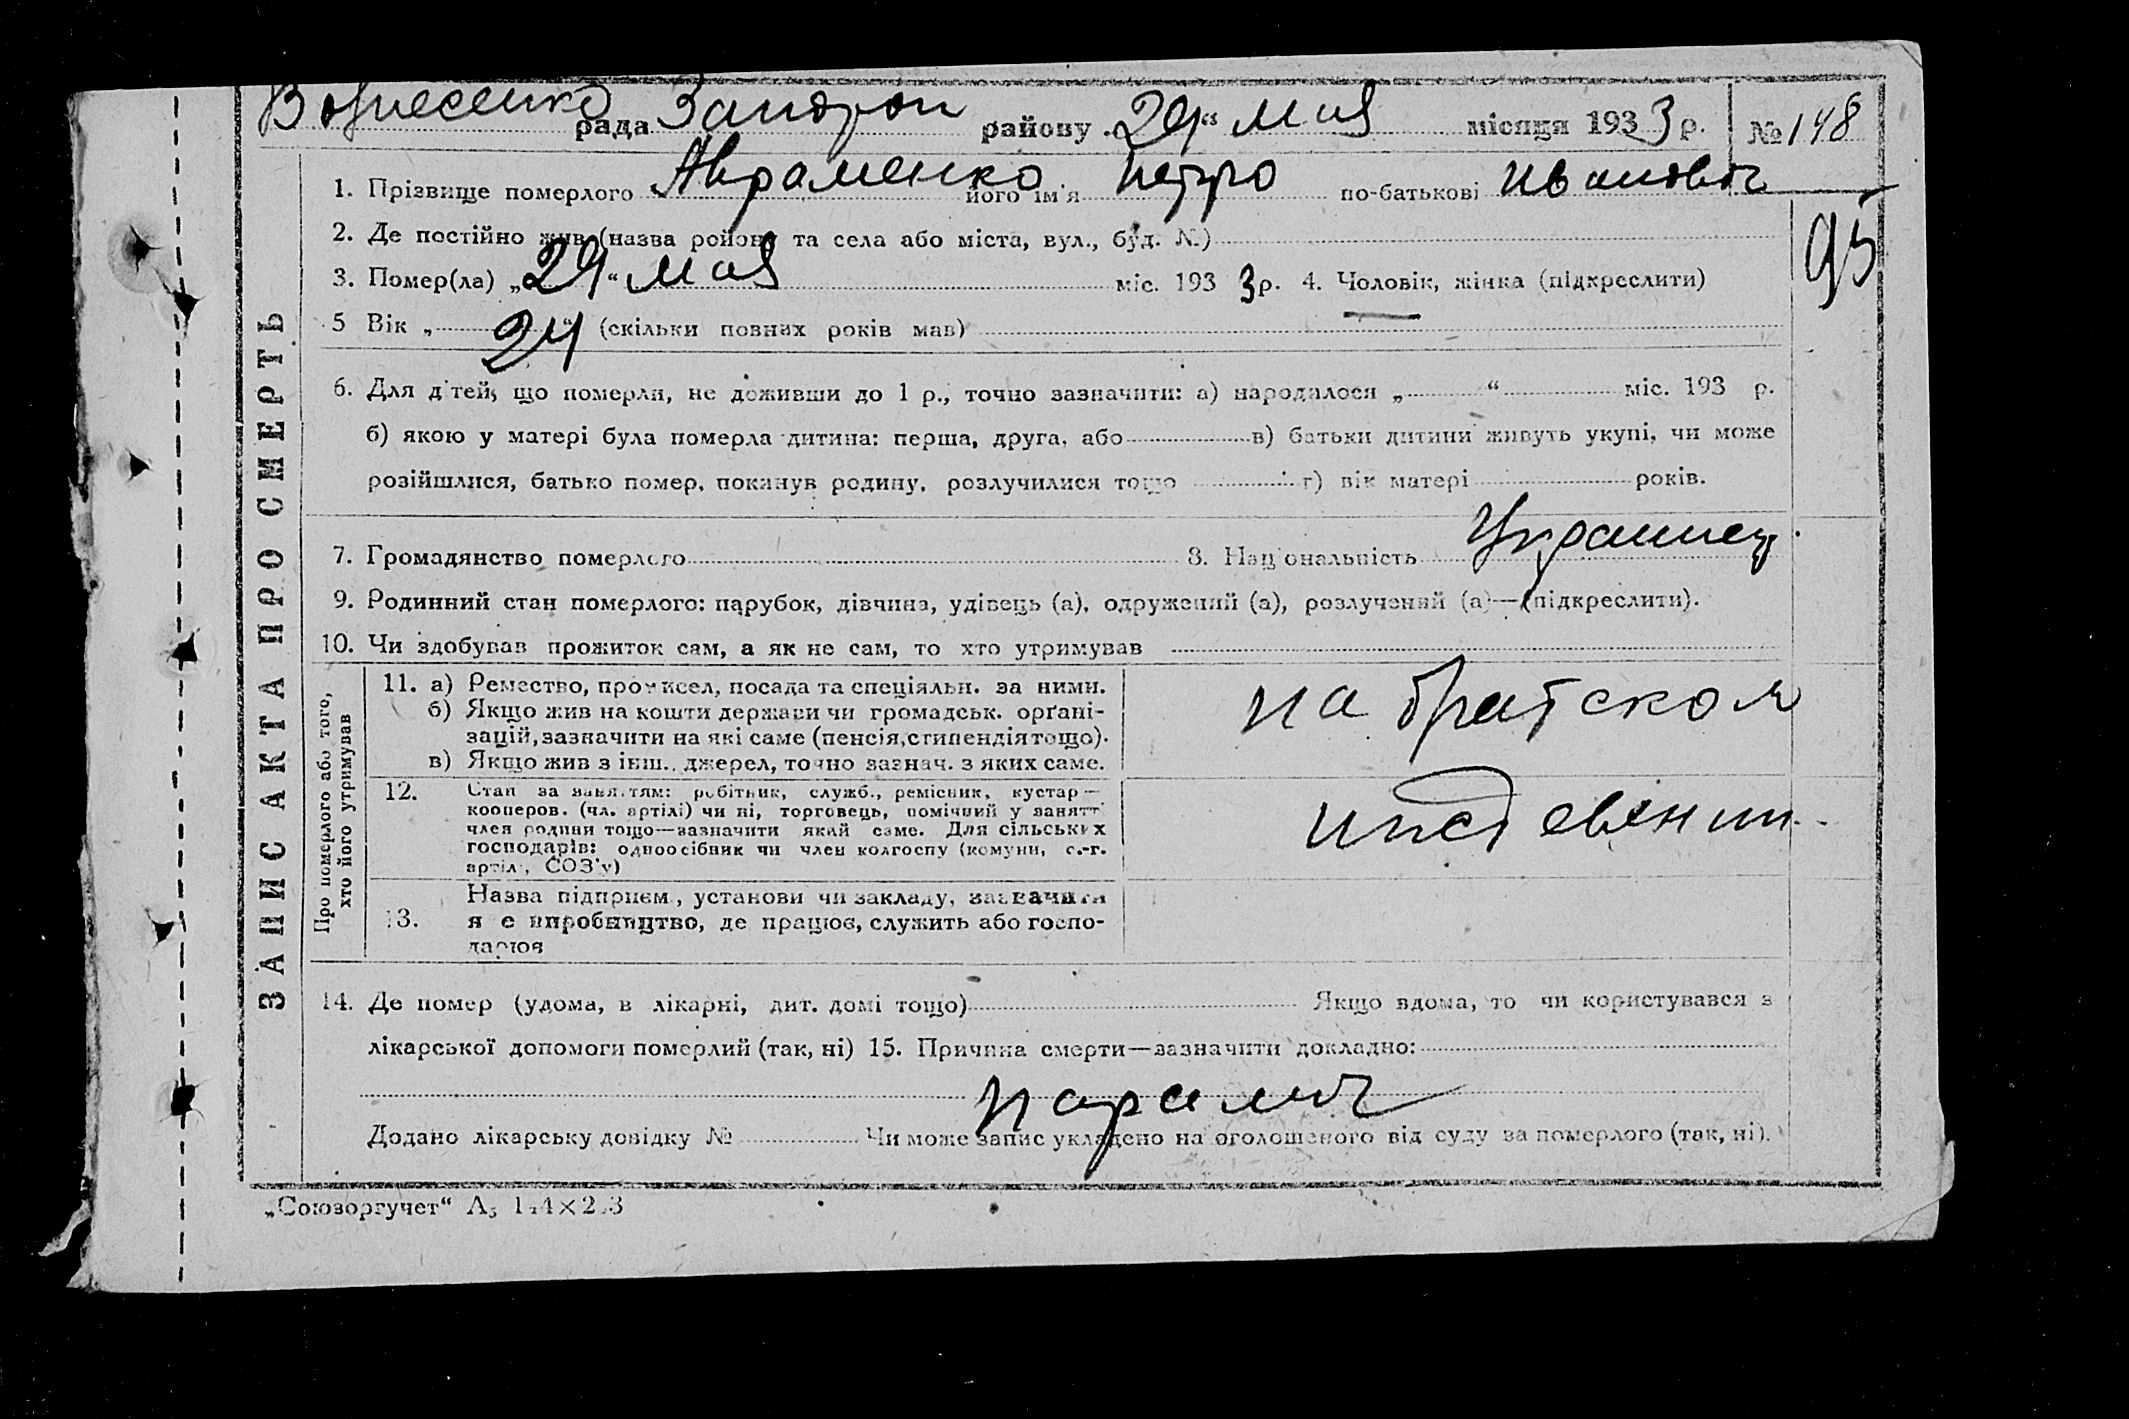 Вознесенко рада Запорож району „29“ Мая місяця 1933 р. № 148
1. Прізвище померлого Авраменко його ім'я Петро по-батькові Иванович
2. Де постійно жив (назва району та села або міста, вул., буд. №)
95
3. Помер(ла) „29“ Мая міс. 1933 р. 4. Чоловік, жінка (підкреслити)
5 Вік „24“ (скільки повних років мав)
6. Для дітей, що померли, не доживши до 1 р., точно зазначити: а) народилося „ “ міс. 193 р.
б) якою у матері була померла дитина: перша, друга, або в) батьки дитини живуть укупі, чи може
розійшлися, батько помер, покинув родину, розлучилися тощо г) вік матері років.
7. Громадянство померлого 8. Національність Украинец
9. Родинний стан померлого: парубок, дівчина, удівець (а), одружений (а), розлучений (а)—(підкреслити).
10. Чи здобував прожиток сам, а як не сам, то хто утримував
ЗАПИС АКТА ПРО СМЕРТЬ
Про померлого або того,
хто його утримував
11. а) Ремество, промисел, посада та спеціяльн. за ними.
б) Якщо жив на кошти держави чи громадськ. орґані-
зацій, зазначити на які саме (пенсія, стипендія тощо).
в) Якщо жив з інш. джерел, точно зазнач. з яких саме.
на братском
12. Стан за заняттям: робітник, служб., ремісник, кустар—
кооперов. (чл. артілі) чи ні, торговець, помічний у занятті
член родини тощо—зазначити який саме. Для сільських
господарів: одноосібник чи член колгоспу (комуни, с.-г.
артілі, СОЗ'у)
13. Назва підприєм., установи чи закладу, зазначити
яке виробництво, де працює, служить або госпо-
дарює
14. Де помер (удома, в лікарні, дит. домі тощо) Якщо вдома, то чи користувався з
лікарської допомоги померлий (так, ні) 15. Причина смерти—зазначити докладно:
паралич
Додано лікарську довідку № Чи може запис укладено на оголошеного від суду за померлого (так, ні).
„Союзоргучет“ А5